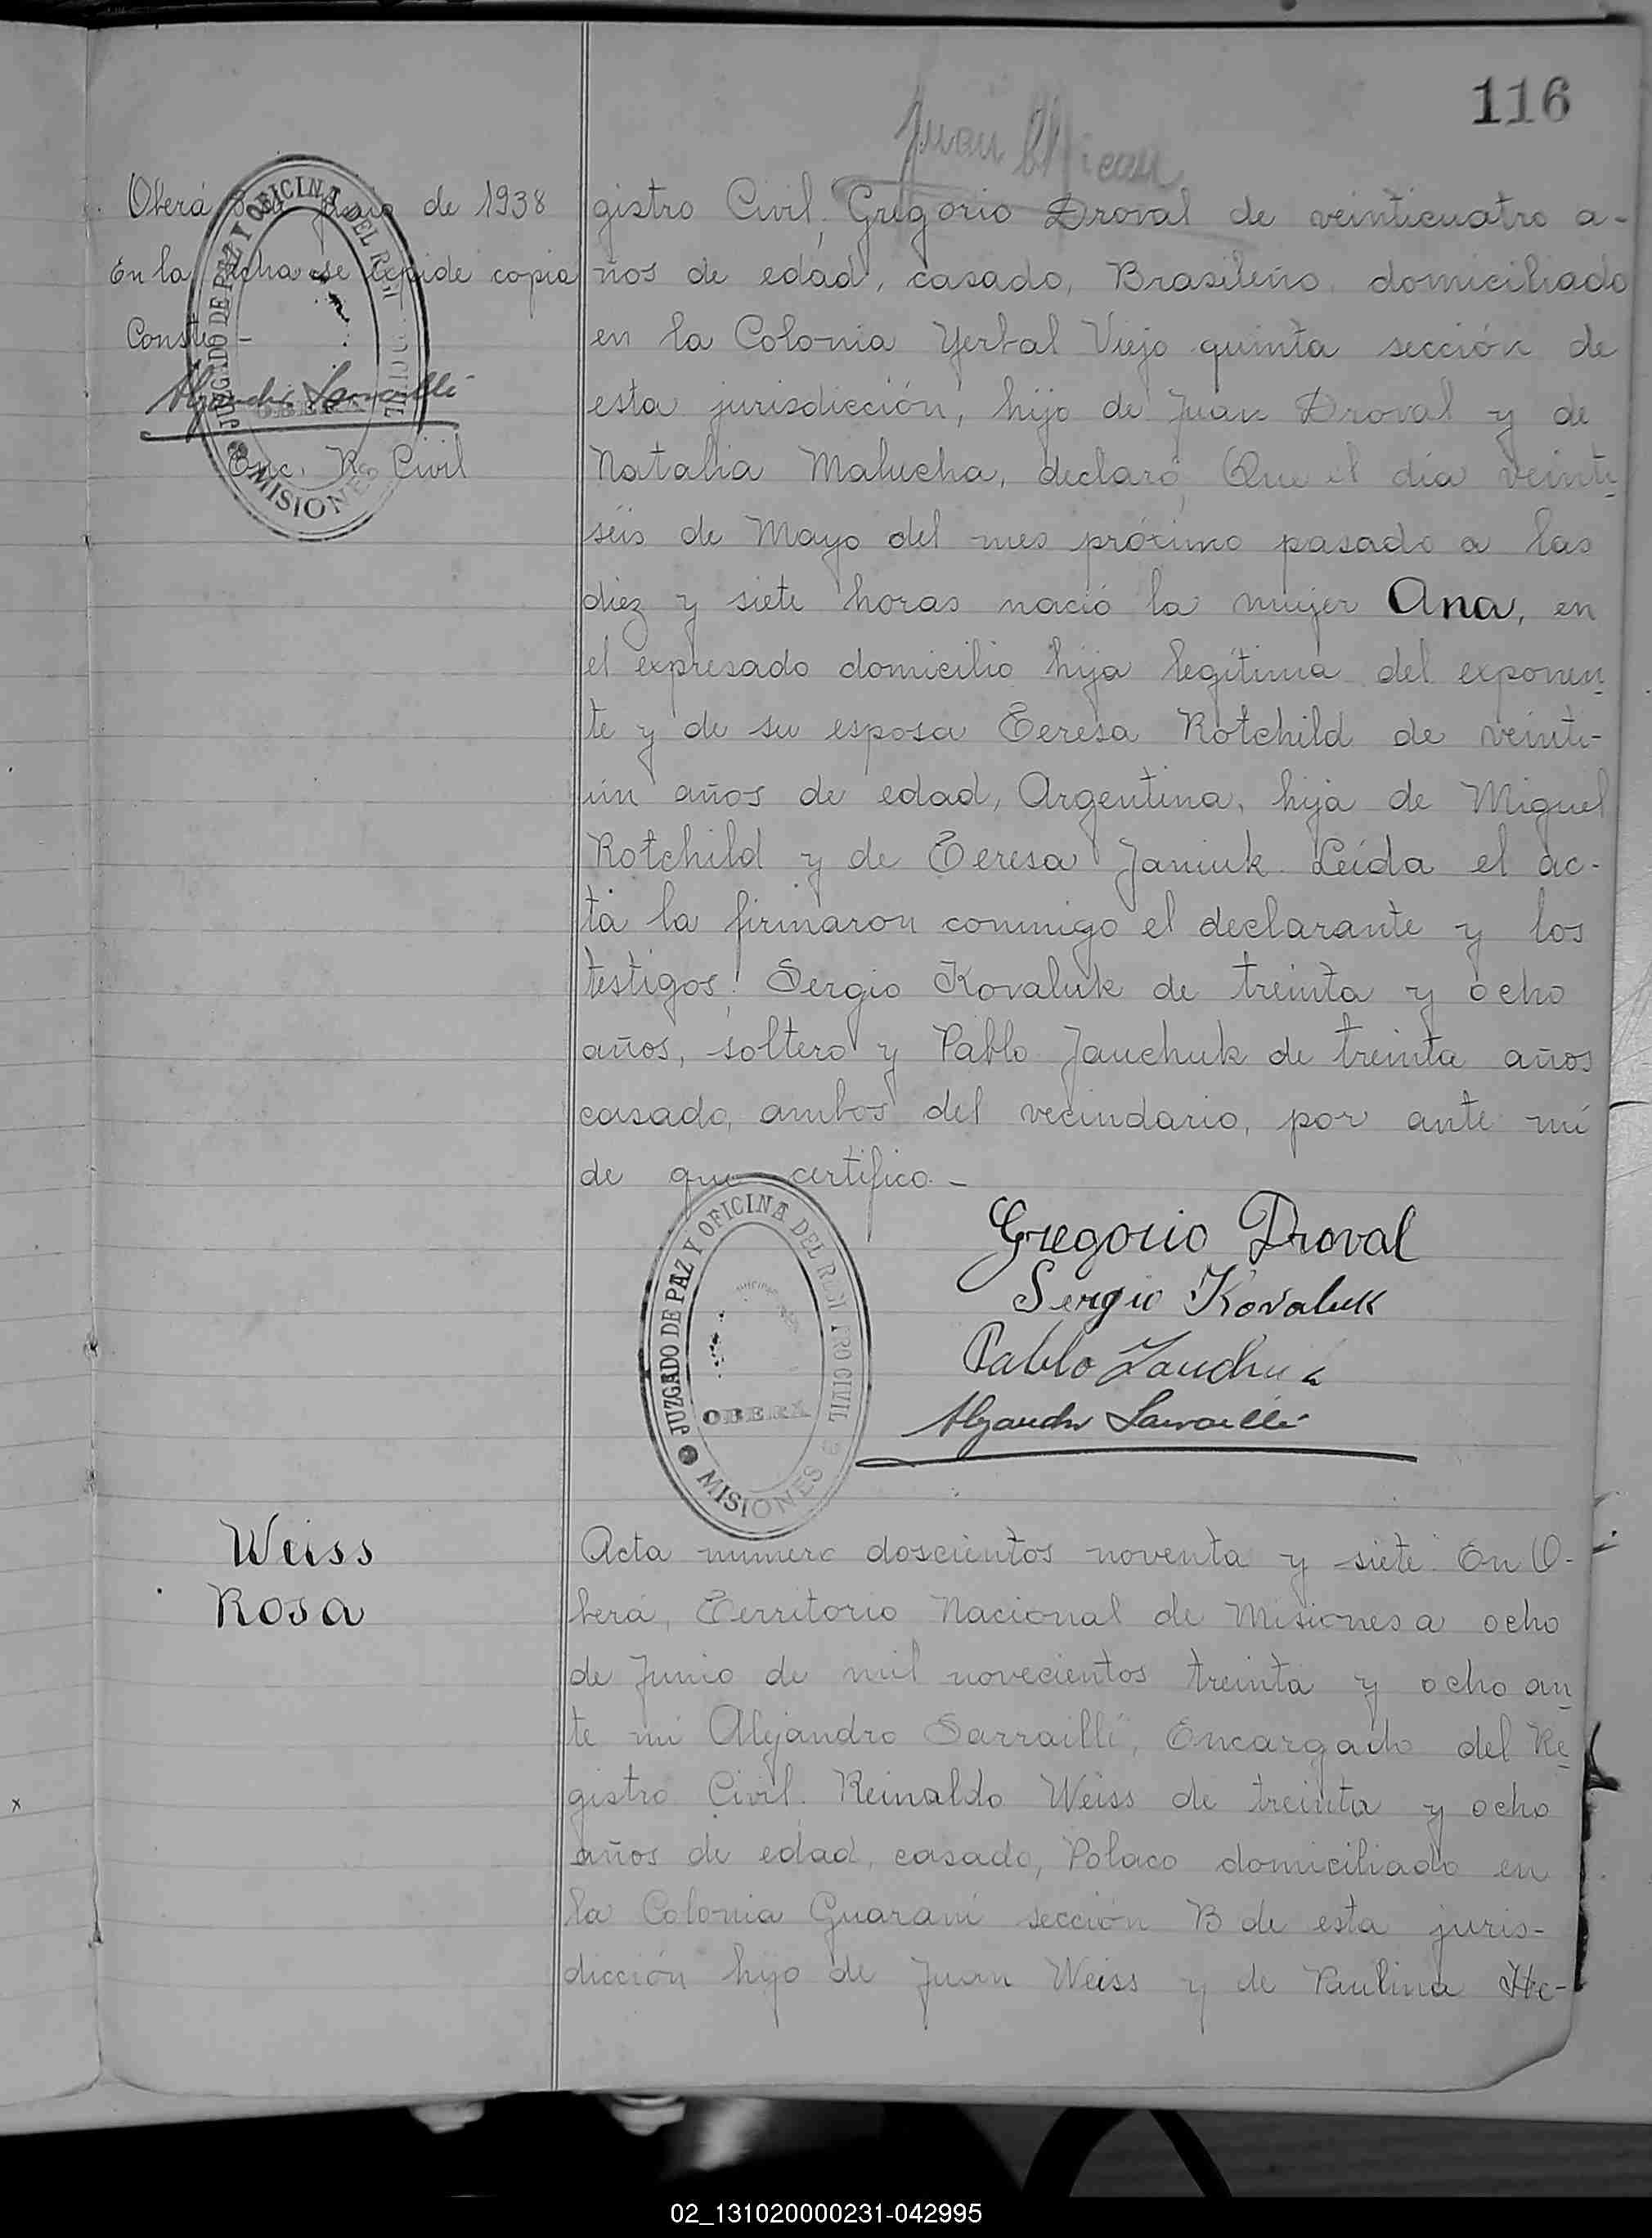 116
Oberá de 1938
En la fecha se expide copia
Conste -
Alejandro Sarrailli
Enc. R. Civil
JUZGADO DE PAZ Y OFICINA DEL
OBERÁ
MISIONES
Juan
gistro Civil, Gregorio Droval de veinticuatro a-
ños de edad, casado, Brasileño, domiciliado
en la Colonia Yerbal Viejo quinta sección de
esta jurisdicción, hijo de Juan Droval y de
Natalia Malucha, declaró, Que el día veinti-
séis de Mayo del mes próximo pasado a las
diez y siete horas nació la mujer Ana, en
el expresado domicilio hija legítima del exponen-
te y de su esposa Teresa Rotchild de veinti-
ún años de edad, Argentina, hija de Miguel
Rotchild y de Teresa Janiuk. Leída el ac-
ta la firmaron conmigo el declarante y los
testigos: Sergio Kovaluk de treinta y ocho
años, soltero y Pablo Jauchuk de treinta años
casado, ambos del vecindario, por ante mí
de que certifico. -
Gregorio Droval
Sergio Kovaluk
Pablo
Alejandro Sarrailli
JUZGADO DE PAZ Y OFICINA DEL REGISTRO CIVIL
OBERÁ
MISIONES
Weiss
Rosa
Acta numero doscientos noventa y siete. En O-
berá, Territorio Nacional de Misiones a ocho
de Junio de mil novecientos treinta y ocho an-
te mí Alejandro Sarrailli, Encargado del Re-
gistro Civil. Reinaldo Weiss de treinta y ocho
años de edad, casado, Polaco domiciliado en
la Colonia Guaraní sección B de esta juris-
dicción hijo de Juan Weiss y de Paulina He-
02_131020000231-042995